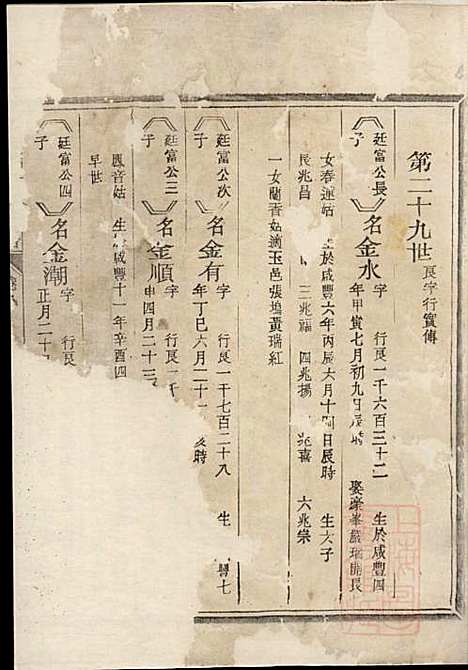 第二十九世 良字行實傳
廷富公長子
名金水 字 行良一千六百三十二 生於咸豐四
年甲寅七月初九日辰時 娶
女春蓮姑 生於咸豐六年丙辰六月十四日辰時 生六子
長兆昌 三兆福 四兆揚 兆喜 六兆崇
一女蘭香姑適玉邑張塢黃瑞紅
廷富公次子
名金有 字 行良一千七百二十八 生 豐七
年丁巳六月二十 亥時
廷富公三子
名金順 字 行良一千
申四月二十三
閏音姑 生 咸豐十一年辛酉四
早世
廷富公四子
名金潮 字 行良
正月二十